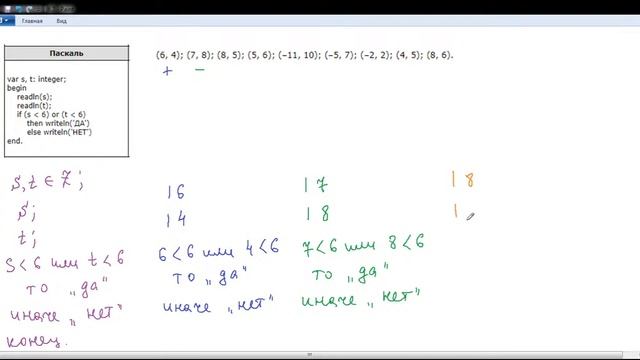 Главная
Паскаль
var s, t: integer;
begin
readln(s);
readln(t);
if (s < 6) or (t < 6)
then writeln('ДА')
else writeln('НЕТ')
end.
(6, 4); (7, 8); (8, 5); (5, 6); (–11, 10); (–5, 7); (–2, 2); (4, 5); (8, 6).
+ −
s,t ∈ Z;
s;
t;
s<6 или t<6
то „да"
иначе „нет"
конец.
| 6
| 4
6<6 или 4<6
то „да"
иначе „нет"
| 7
| 8
7<6 или 8<6
то „да"
иначе „нет"
| 8
|